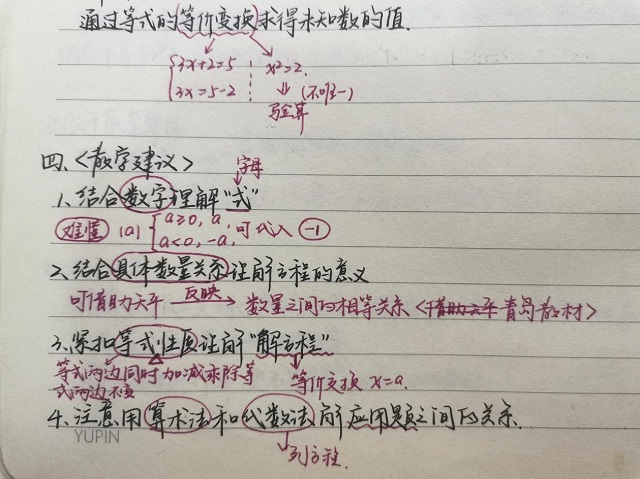 通过等式的等价变换求得未知数的值.
3x+2=5 x²=2.
3x=5-2 ⇓ (不唯一)
验算
四、<教学建议>
字母
1、结合数字理解"式"
难懂 |a| { a≥0, a, 可代入 -1
a<0, -a,
2、结合具体数量关系理解方程的意义
可借助天平 反映→ 数量之间的相等关系 <借助天平 青岛教材>
3、紧扣等式性质理解"解方程"
等式两边同时加减乘除等
式两边不变 等价变换 x=a.
4、注意用算术法和代数法解应用题之间的关系.
列方程.
YUPIN